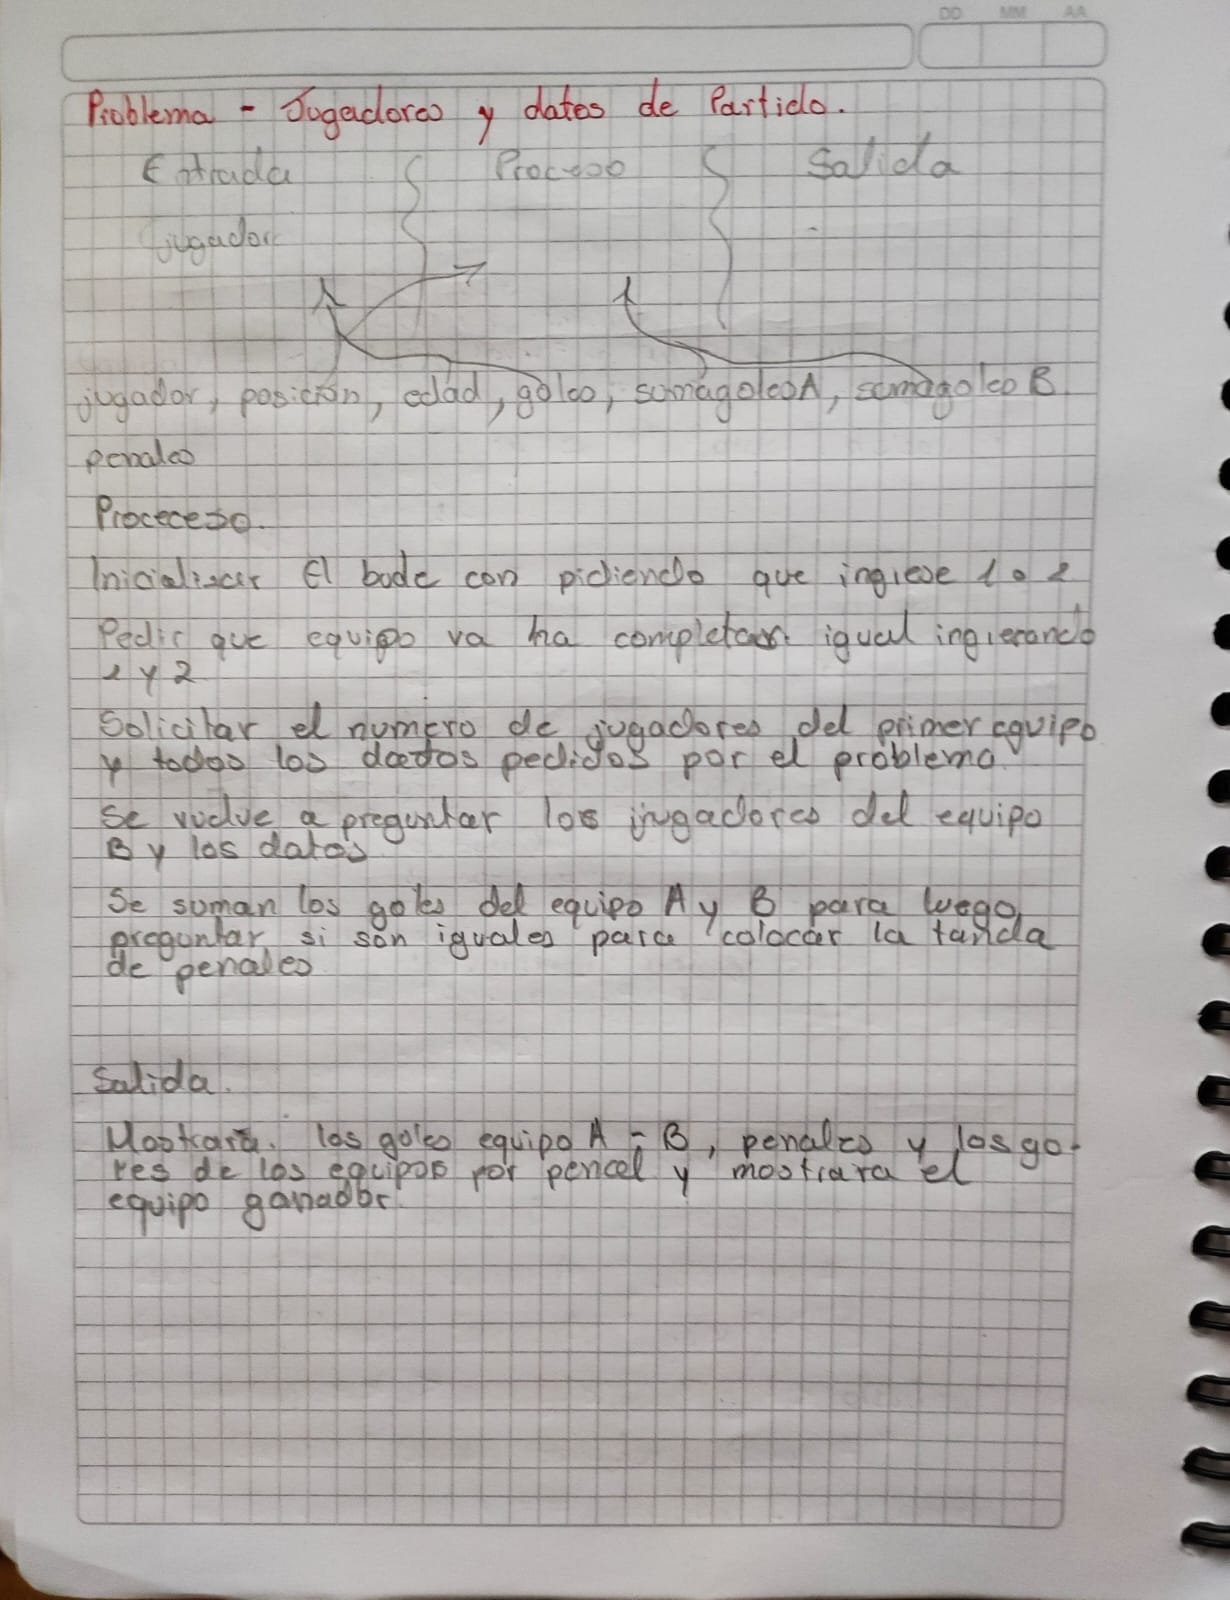 DD MM AA
Problema - Jugadores y datos de Partido.
Entrada Proceso Salida
jugador
jugador, posición, edad, goles, sumagolesA, sumagoles B
penales
Prococeso.
Inicializar El bucle con pidiendo que ingrese 1 o 2
Pedir que equipo va ha completar igual ingresando
1 y 2
Solicitar el numero de jugadores del primer equipo
y todos los datos pedidos por el problema.
Se vuelve a preguntar los jugadores del equipo
B y los datos
Se suman los goles del equipo A y B para luego
preguntar si son iguales para colocar la tanda
de penales
Salida.
Mostrara. los goles equipo A - B, penales y los go-
res de los equipos por penal y mostrara el
equipo ganador.